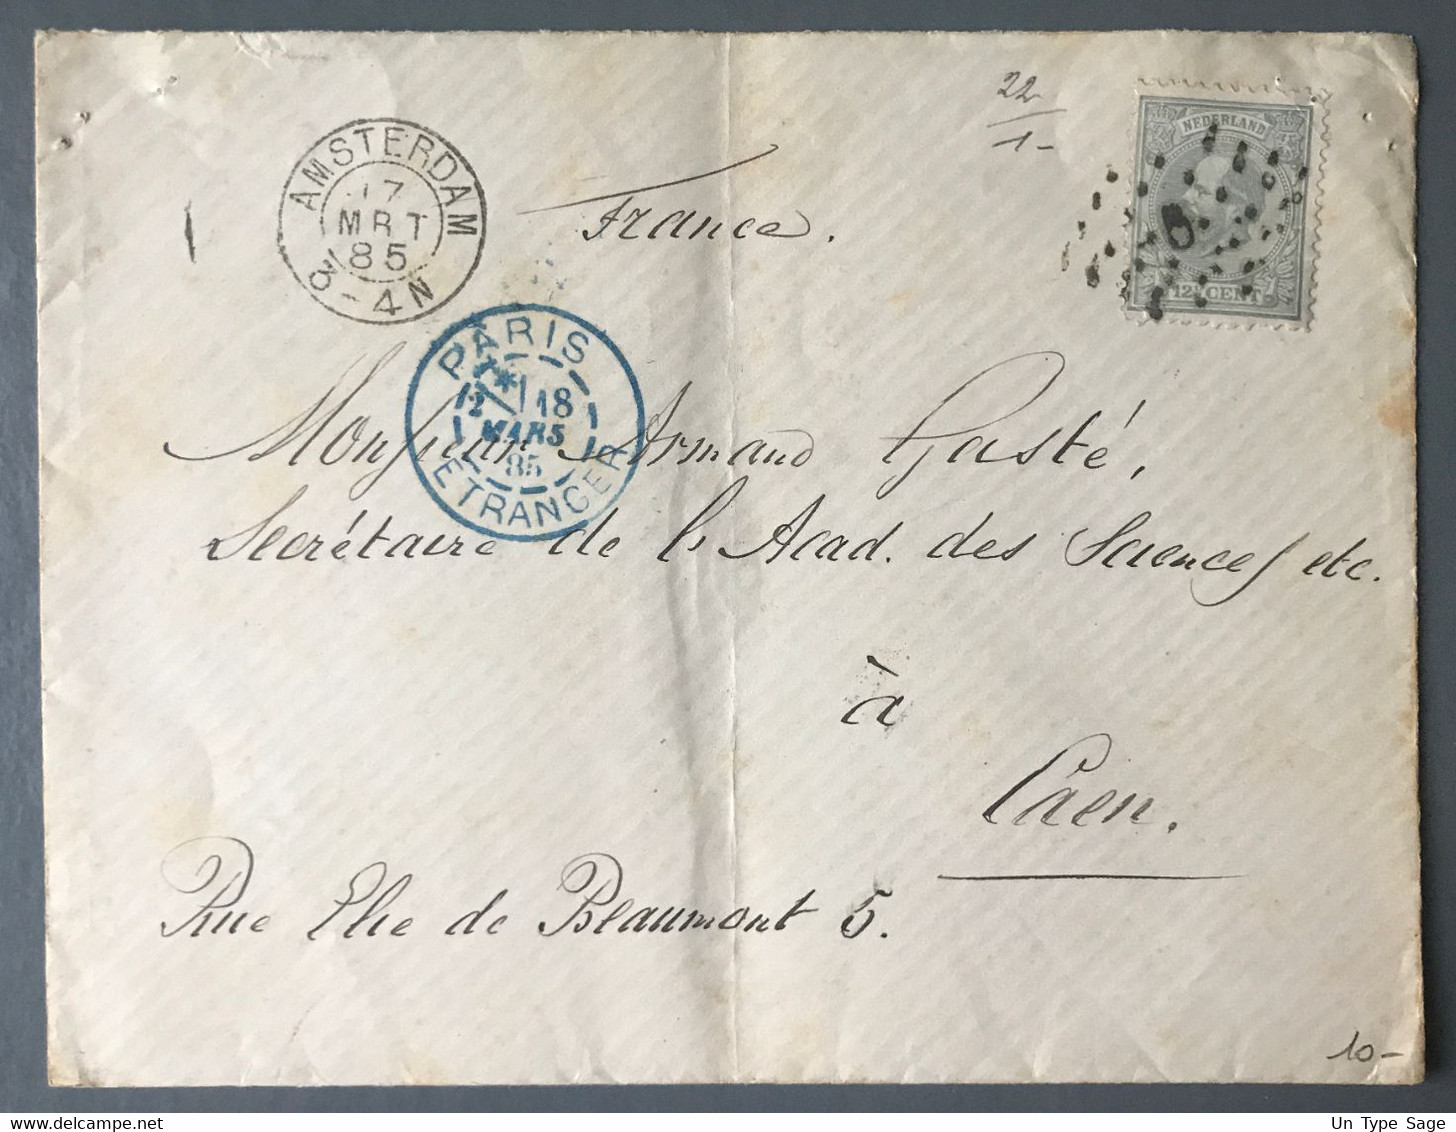 22
1-
NEDERLAND
12½ CENT
AMSTERDAM
17
MRT
85
3-4N
France.
PARIS
2 * 18
MARS
85
ETRANGER
Monsieur Armand Gasté,
Secrétaire de l'Acad. des Sciences etc.
à
Caen.
Rue Elie de Beaumont 5.
10-
Un Type Sage